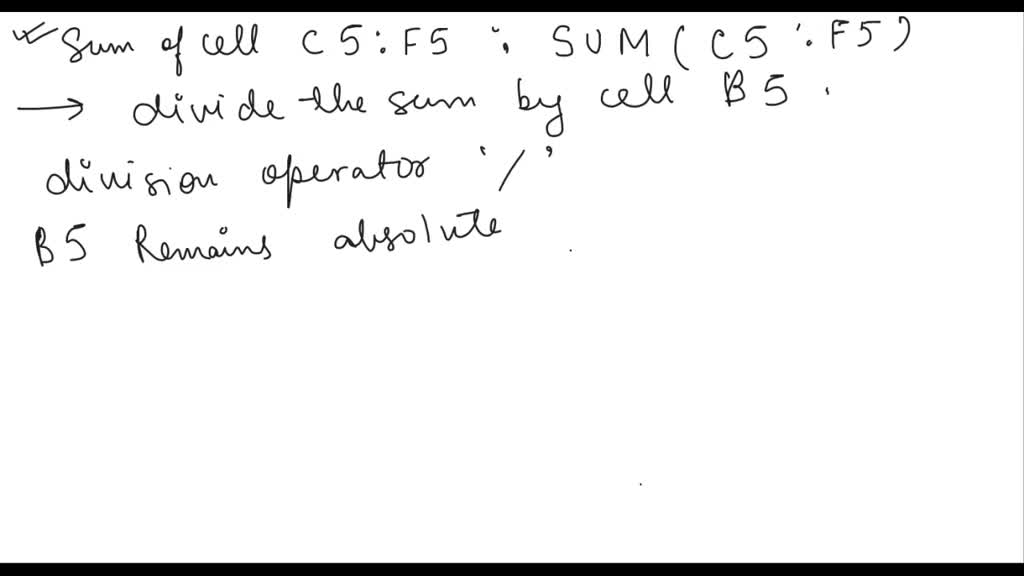 Sum of cell C5:F5 : SUM(C5:F5)
→ divide the sum by cell B5.
division operator '/'
B5 Remains absolute